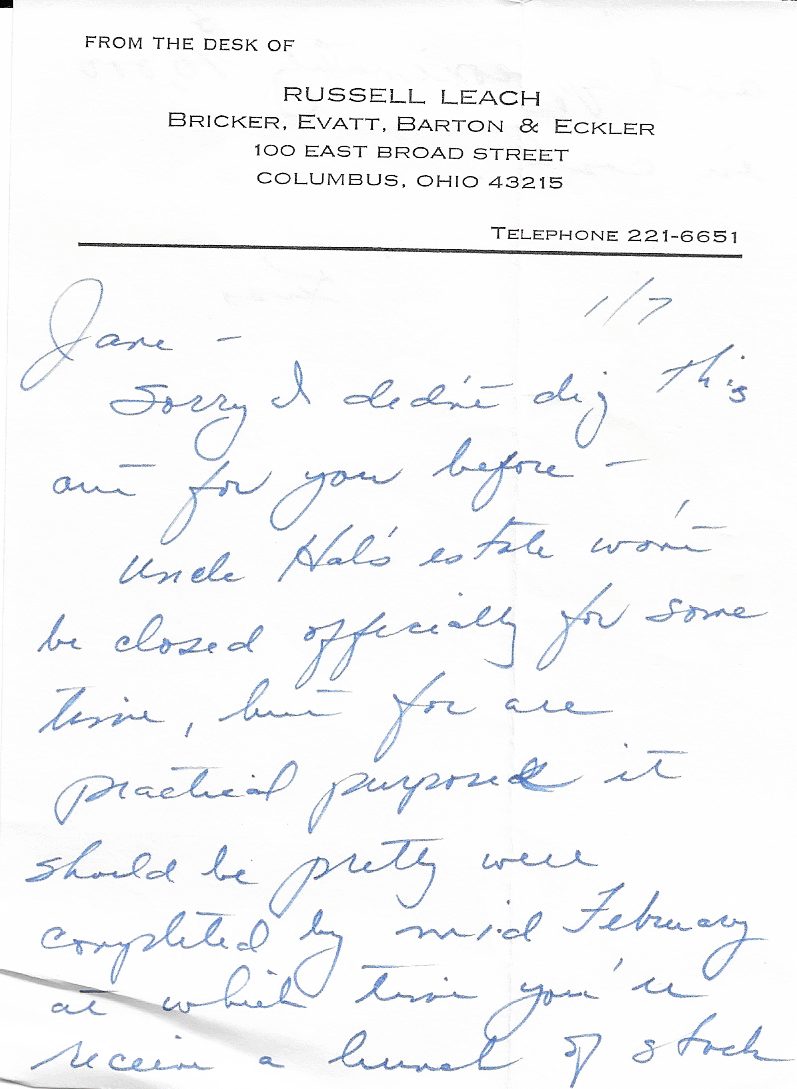 FROM THE DESK OF
RUSSELL LEACH
BRICKER, EVATT, BARTON & ECKLER
100 EAST BROAD STREET
COLUMBUS, OHIO 43215
TELEPHONE 221-6651
1/7
Jane -
Sorry I didn't dig this
out for you before -
Uncle Hal's estate won't
be closed officially for some
time, but for all
practical purposes it
should be pretty well
completed by mid February
at which time you'll
receive a bunch of stock